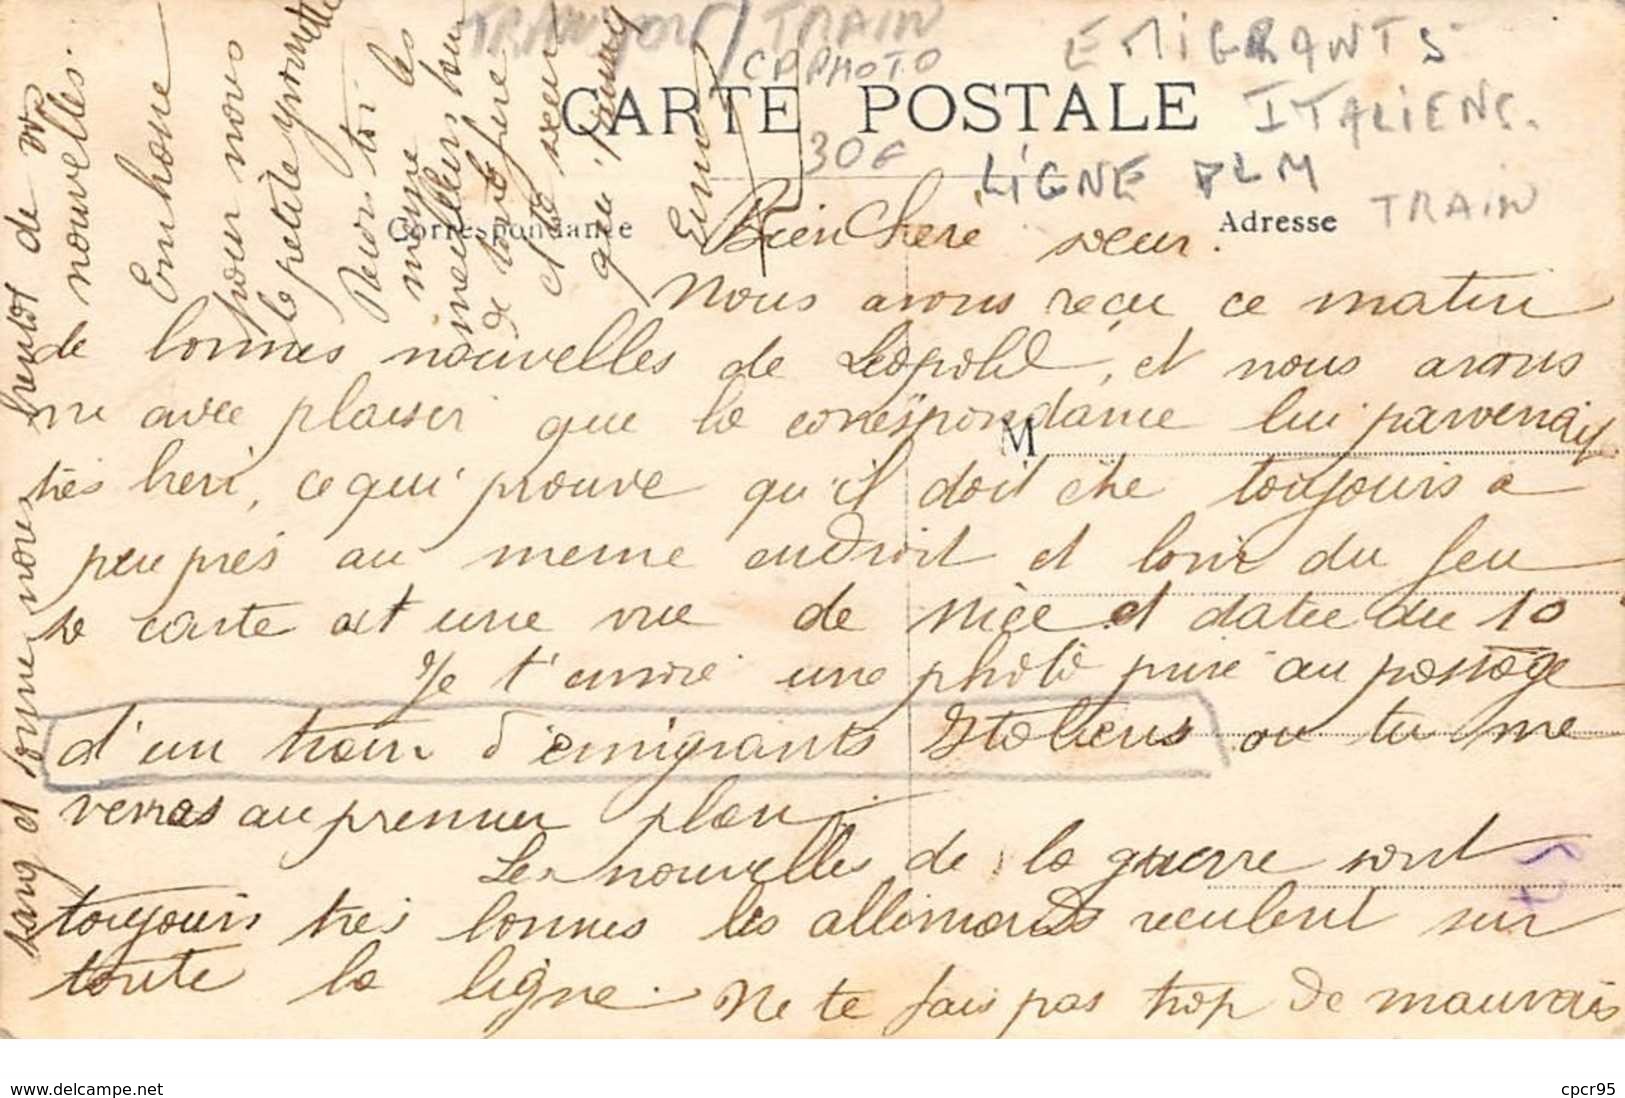 TRAIN
CP PHOTO
EMIGRANTS
ITALIENS.
CARTE POSTALE
30€
LIGNE PLM
TRAIN
Correspondance
Adresse
Bien Chere sœur.
Nous avons reçu ce matin
de bonnes nouvelles de Léopold, et nous avons
vu avec plaisir que la correspondance lui parvenait
très bien, ce qui prouve qu'il doit être toujours a
peu près au meme endroit et loin du feu
sa carte est une vue de Nice et datée du 10
Je t'envoie une photo prise au passage
d'un train d'émigrants Italiens ou tu me
verras au premier plan
Les nouvelles de la guerre sont
toujours très bonnes les allemands reculent sur
toute la ligne. Ne te fais pas trop de mauvais
M
sang et donne nous bientot de
nouvelles.
Embrasse
pour nous
la petite
Reçois toi
meme les
meilleurs
de ton frere
et ta sœur
qui